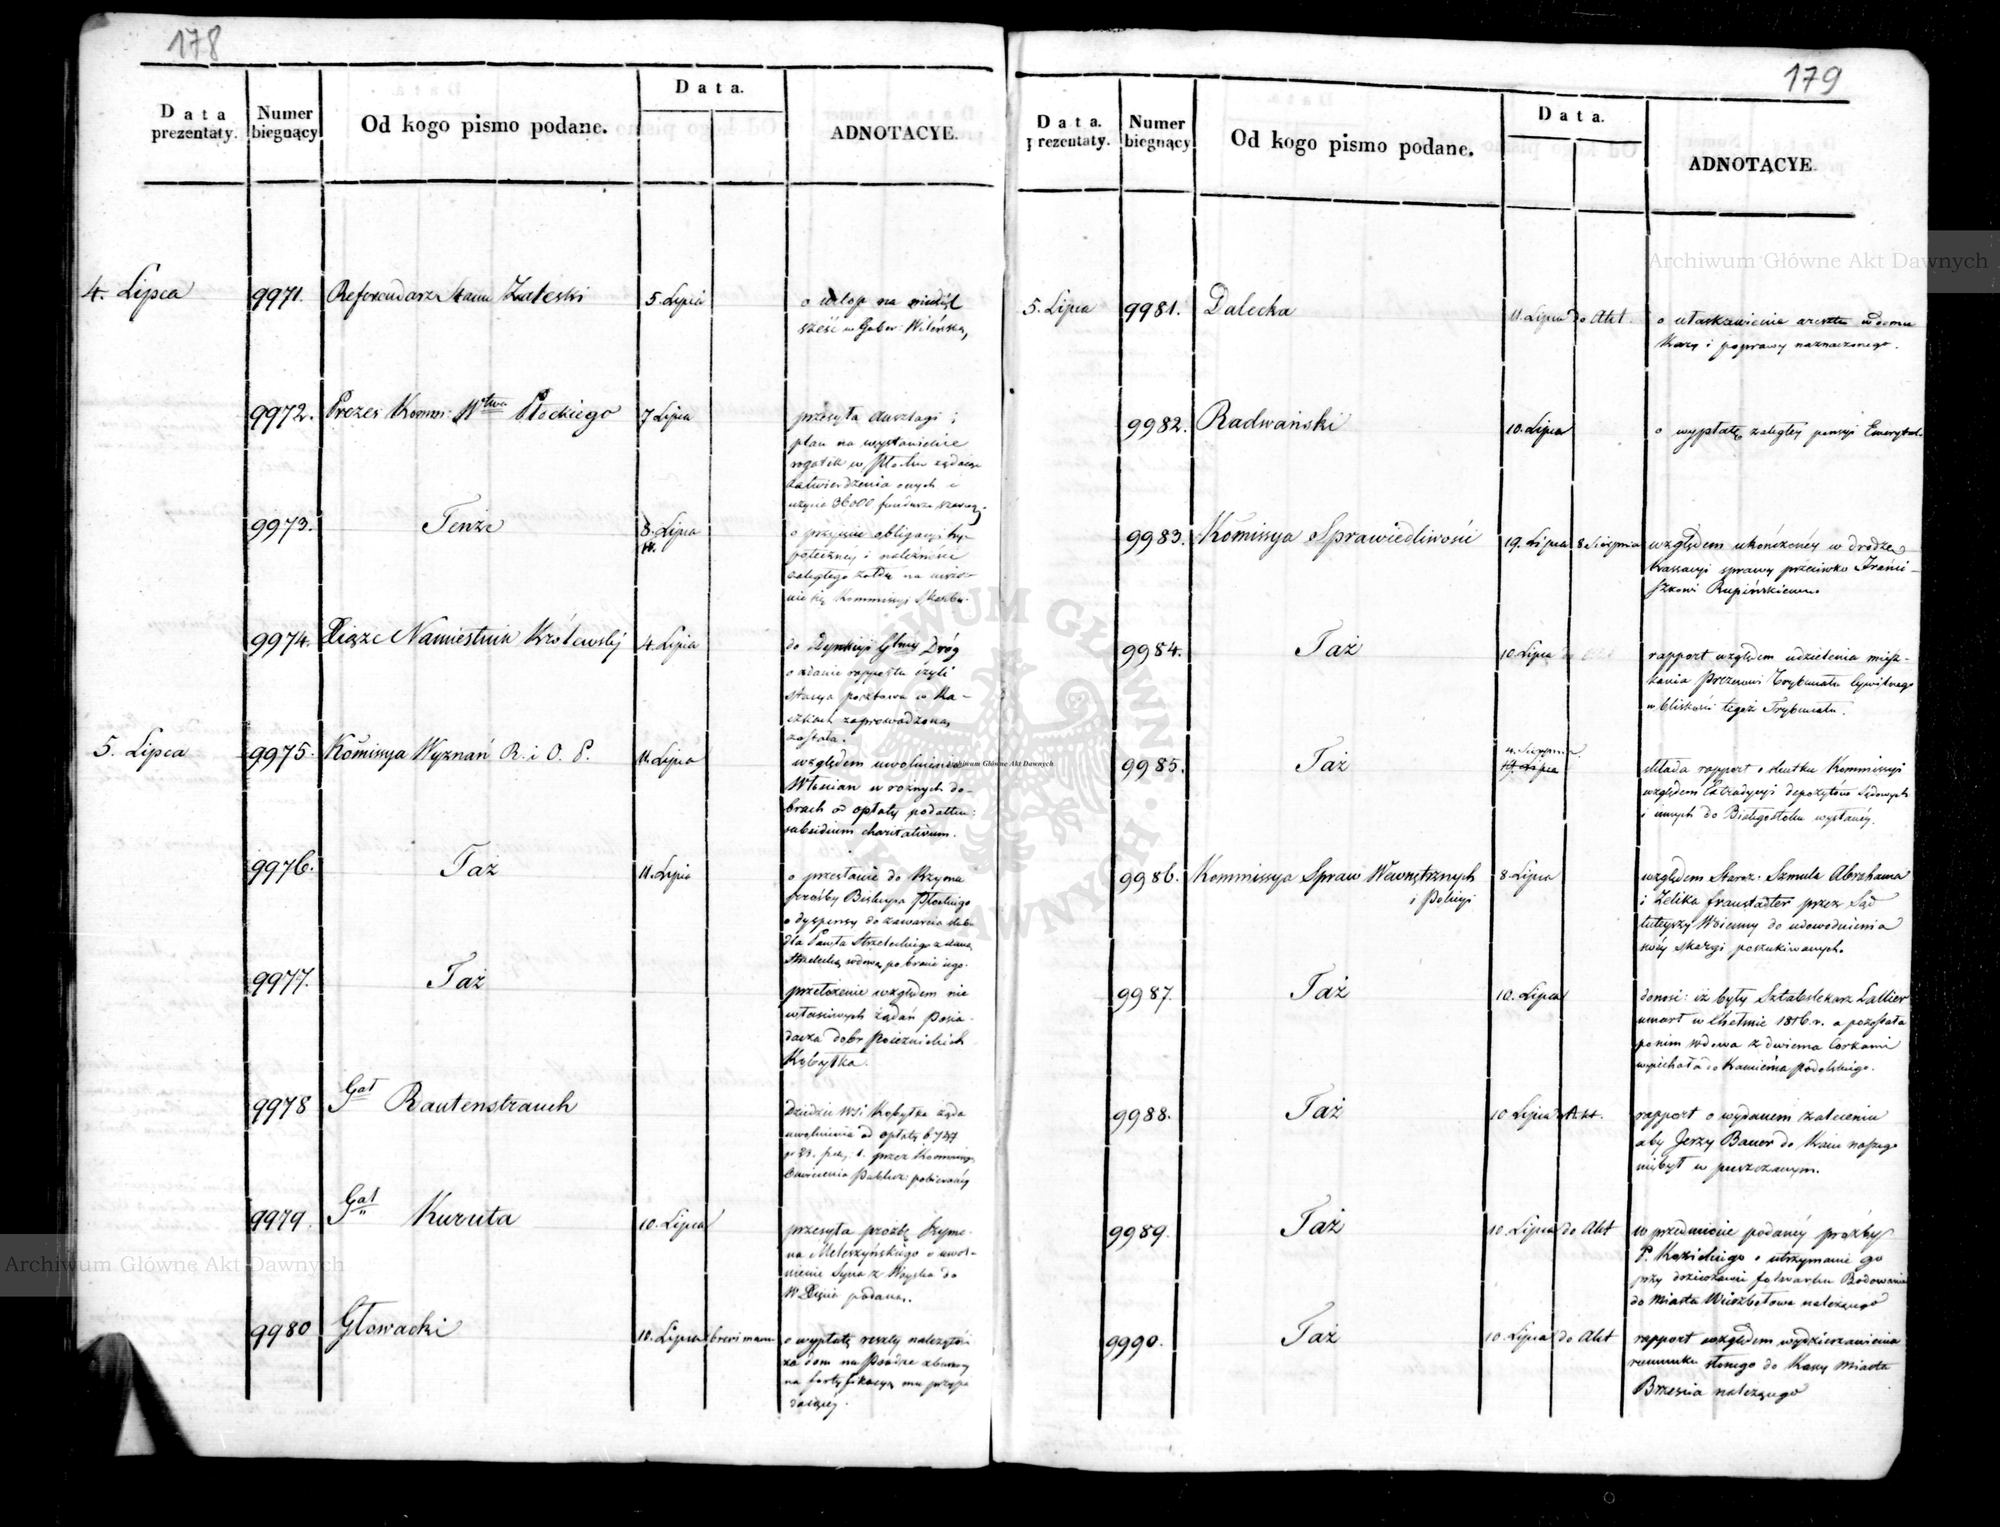 178
Data prezentaty.
Numer biegnący
Od kogo pismo podane.
Data.
ADNOTACYE.
4. Lipca
9971.
Referendarz Stanu Zaleski
5. Lipca
o urlop na niedziel
sześć w Guber: Wileńską,
9972.
Prezes Kommi: Wtwa Płockiego
7 Lipca
przesyła anszlagi i
plan na wystawienie
rogatek w Płocku żądaiąc
zatwierdzenia onych i
użycia 36000 funduszu
9973.
Tenże
8. Lipca
o przyięcie obligacyi hy-
poteczney i należność
zaległego żołdu na
Kommissyi Skarbu.
9974.
Xiąże Namiestnik Królewski
4. Lipca
do Dyrekcyi Glney Dróg
o zdanie rapportu czyli
stacya pocztowa w Ra-
zaprowadzona,
została.
5. Lipca
9975.
Kommissya Wyznań R. i O. P.
11. Lipca
względem uwolnienia
Włościan w rożnych do-
brach od opłaty podatku:
subsidium charitativum.
9976.
Taż
11. Lipca
o przesłanie do Rzymu
prośby Biskupa Płockiego
o dyspensę do zawarcia ślubu
dla Pawła Strzeleckiego z
Strzelecką wdową po bracie iego.
9977.
Taż
przełożenie względem nie
właściwych żądań Posia-
dacza dobr
Kobyłka.
9978
Gał Rautenstrauch
Dziedzic wsi Kobyłka żąda
uwolnienia od opłaty
przez Kommissyę
Oświecenia Publicz: pobieraney
9979.
Gał Kuruta
10. Lipca
przesyła prożbę Szymo-
na Mełeszyńskiego o uwol-
nienie Syna z Woyska do
W. Xięcia podaną.
9980
Głowacki
10. Lipca
brevi manu
o wypłatę reszty należytości
za dom na Pradze zburzony
na fortyfikacyą mu przypa-
daiącey.
179
Data. prezentaty.
Numer biegnący
Od kogo pismo podane.
Data.
ADNOTACYE
5. Lipca
9981.
Dalecka
11. Lipca
do Akt.
o ułaskawienie aresztu w Domu
Kary i poprawy naznaczonego.
9982.
Radwański
10. Lipca
o wypłatę zaległey pensyi Emerytal.
9983.
Kommissya Sprawiedliwości
19. Lipca
8 Sierpnia
względem ukończoney w drodze
Kassacyi sprawy przeciwko Franci-
szkowi Rupińskiemu
9984.
Taż
10. Lipca
do Akt
rapport względem udzielenia miesz-
kania Prezesowi Trybunału Cywilnego
w bliskości tegoż Trybunału.
9985.
Taż
4. Sierpnia
19. Lipca
składa rapport o skutku Kommissyi
względem Extradycyi depozytów Sądowych
i innych do Białegostoku wysłaney.
9986.
Kommissya Spraw Wewnętrznych
i Policyi
8 Lipca
względem Staroz: Szmula Abrahama
i Zelika Fraustädter przez Sąd
tuteyszy Woienny do udowodnienia
swey skargi poszukiwanych.
9987.
Taż
10. Lipca
donosi: iż były Sztabslekarz Lallier
umarł w Chełmie 1816. r. a pozostała
po nim wdowa z dwiema Corkami
wyiechała do Kamieńca podolskiego.
9988.
Taż
10 Lipca
Akt.
rapport o wydanem zaleceniu
aby Jerzy Bauer do Kraiu naszego
niebył w puszczanym.
9989.
Taż
10. Lipca
do Akt
w przedmiocie podaney prożby
P. Kozickiego o utrzymanie go
przy dzierżawie folwarku Bodowania
do Miasta Wierzbołowa należącego
9990.
Taż
10. Lipca
do Akt
rapport względem wydzierżawienia
do Kassy Miasta
Brzescia należącego
Archiwum Główne Akt Dawnych
Archiwum Główne Akt Dawnych
Archiwum Główne Akt Dawnych
ARCHIWUM GŁÓWNE AKT DAWNYCH